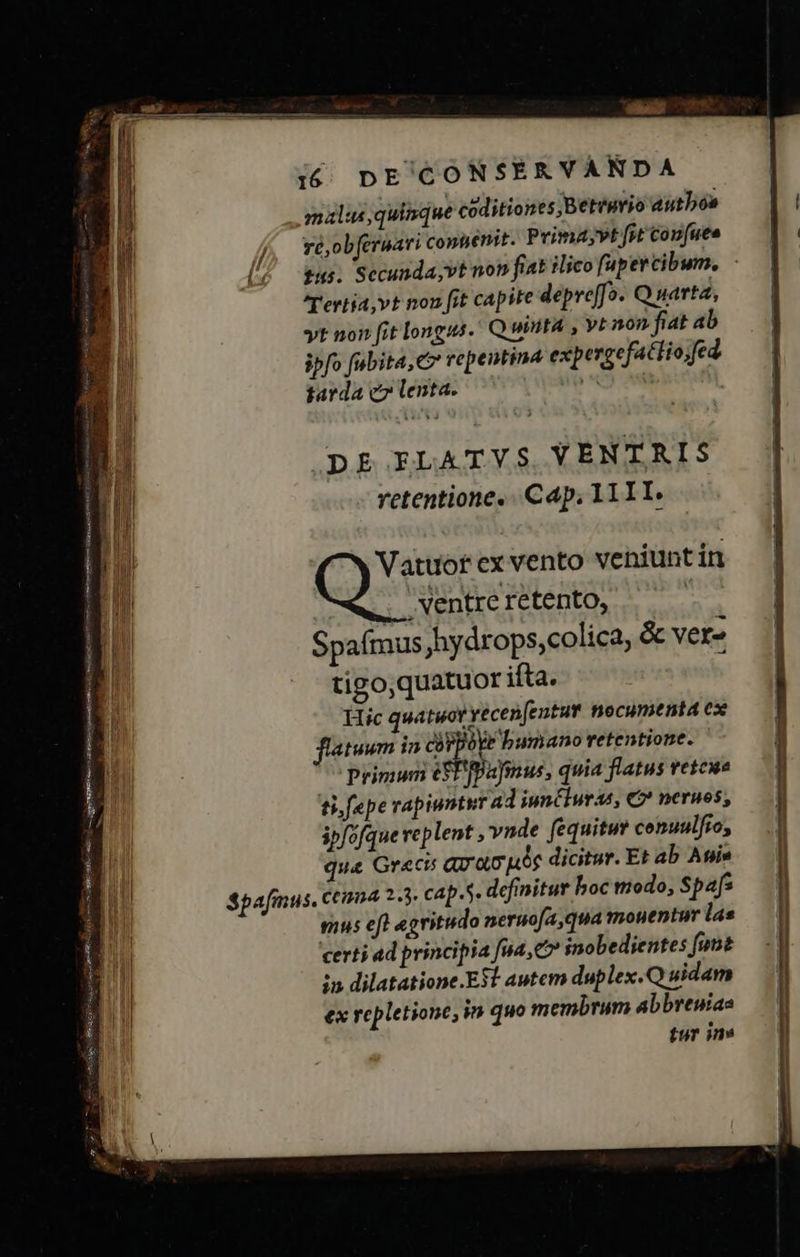 16 DE CONSERVANDA
malus,quinque cōditiones,Betrurio autho⸗
re,obſeruari conuenit. Prima,vt ſit conſue⸗
tus. Secunda,vt non fiat ilico ſuper cibum.
Tertia,vt non ſit capite depreſſo. Quarta,
vt non ſit longus. Quinta , vt non fiat ab
ipſo ſubita,& repentina expergefactio,ſed
tarda & lenta.
DE FLATVS VENTRIS
retentione. Cap. IIII.
QVatuor ex vento veniunt in
ventre retento,
Spaſmus,hydrops,colica, & ver⸗
tigo,quatuor iſta.
Hic quatuor recenſentur nocumenta ex
flatuum in corpore humano retentione.
Primum eſt ſpaſmus, quia flatus reten⸗
ti,ſæpe rapiuntur ad iuncturas, & neruos,
ipſóſque replent , vnde ſequitur conuulſio,
quæ Græcis σπασμὸς dicitur. Et ab Aui⸗
Spaſmus. cenna 2.3. cap.5. definitur hoc modo, Spaſ⸗
mus eſt ægritudo neruoſa,qua mouentur la⸗
certi ad principia ſua,& inobedientes ſunt
in dilatatione.Eſt autem duplex.Quidam
ex repletione, in quo membrum abbreuia⸗
tur in⸗